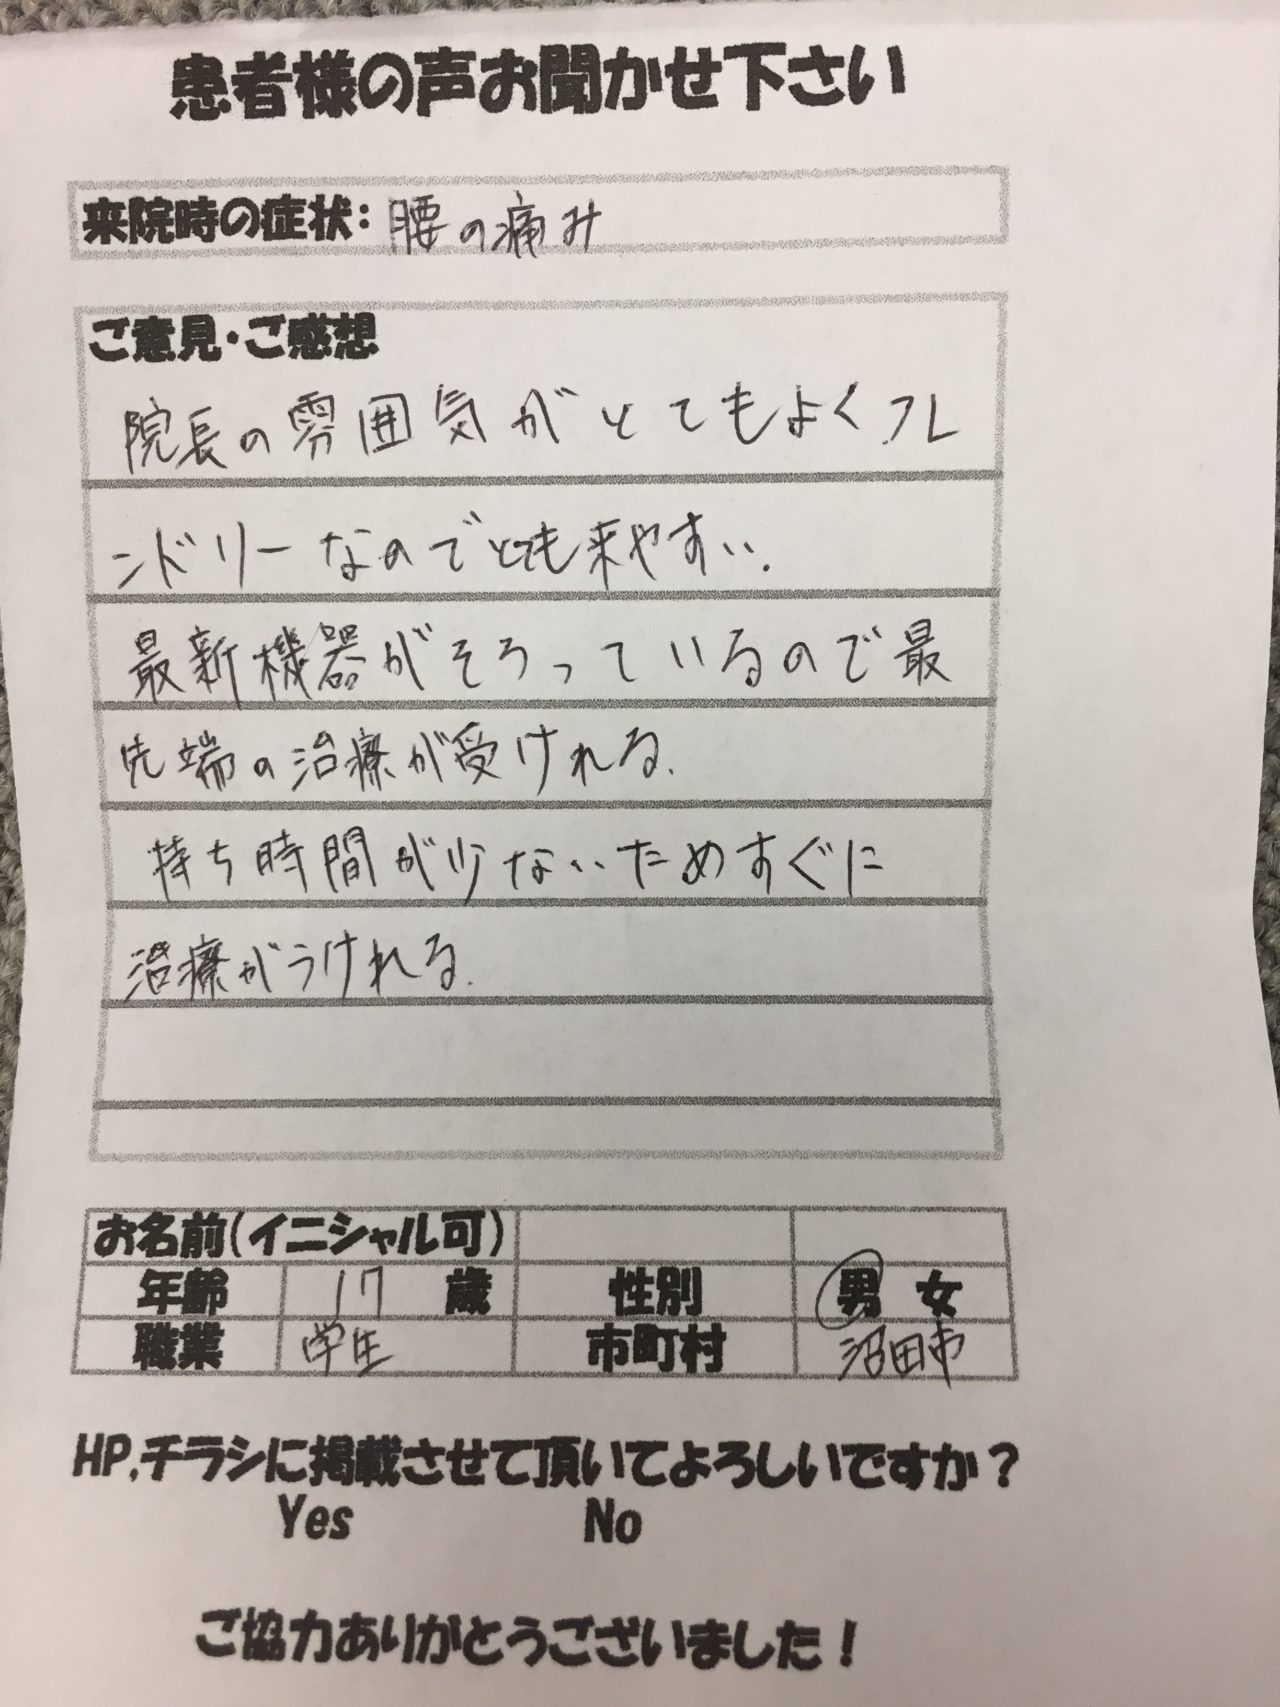 患者様の声お聞かせ下さい
来院時の症状: 腰の痛み
ご意見・ご感想
院長の雰囲気がとてもよくフレ
ンドリーなのでとても来やすい.
最新機器がそろっているので最
先端の治療が受けれる.
待ち時間が少ないためすぐに
治療がうけれる.
お名前(イニシャル可)
年齢 17 歳 性別 男 女
職業 学生 市町村 沼田市
HP,チラシに掲載させて頂いてよろしいですか?
Yes No
ご協力ありがとうございました!